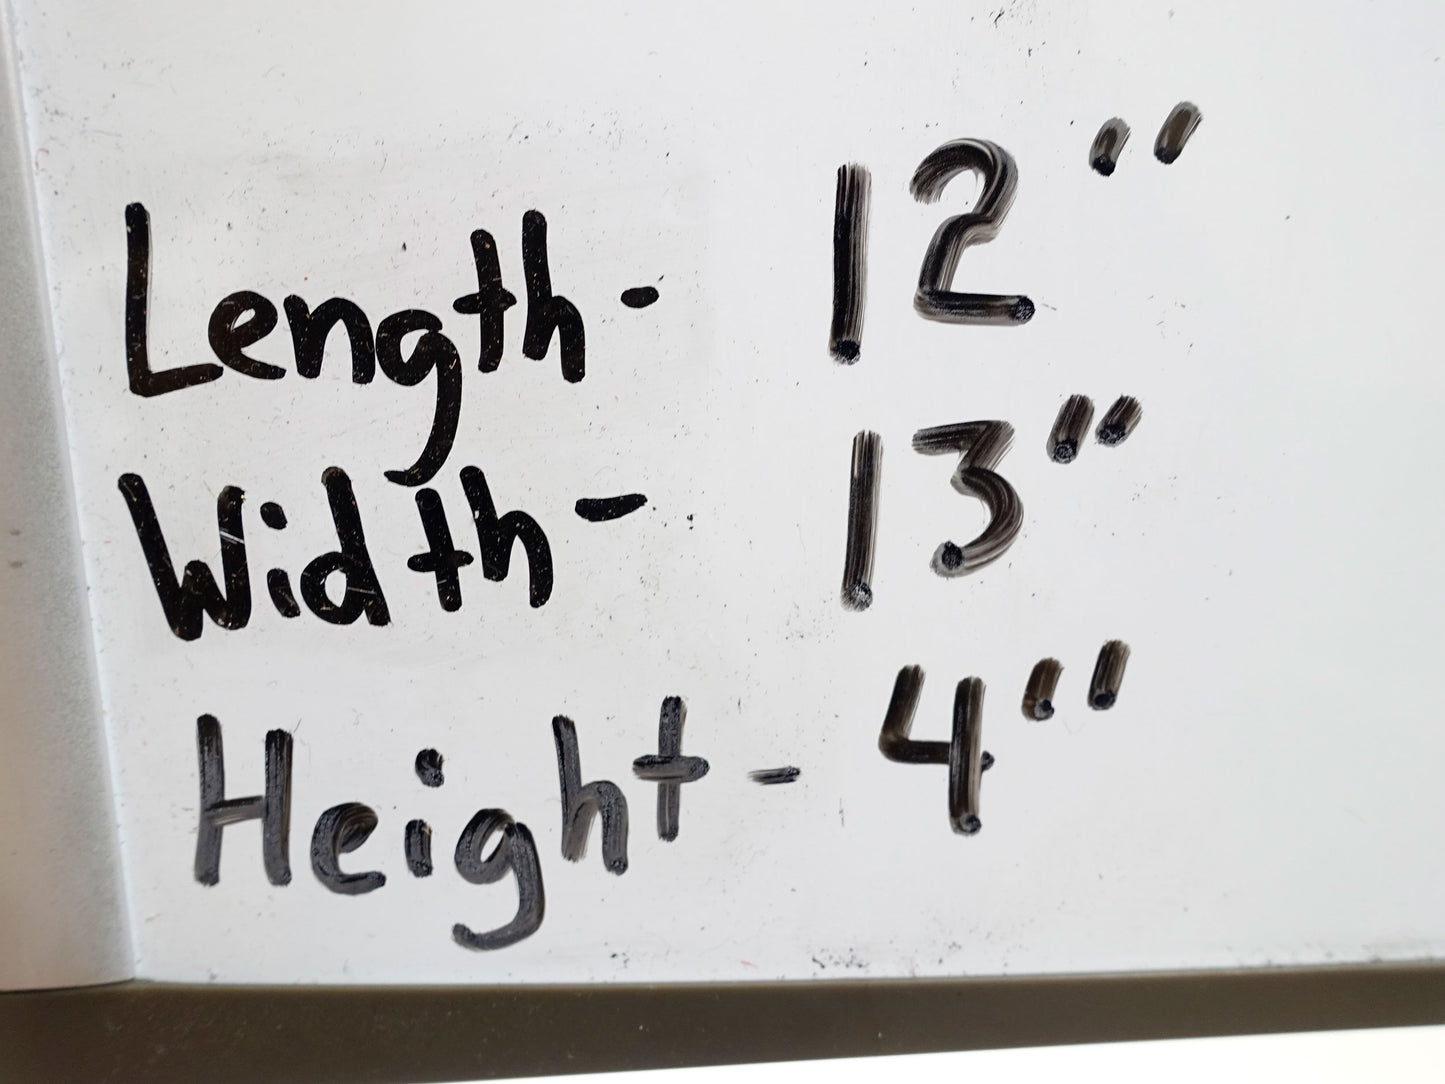 Length- 12"
Width- 13"
Height- 4"